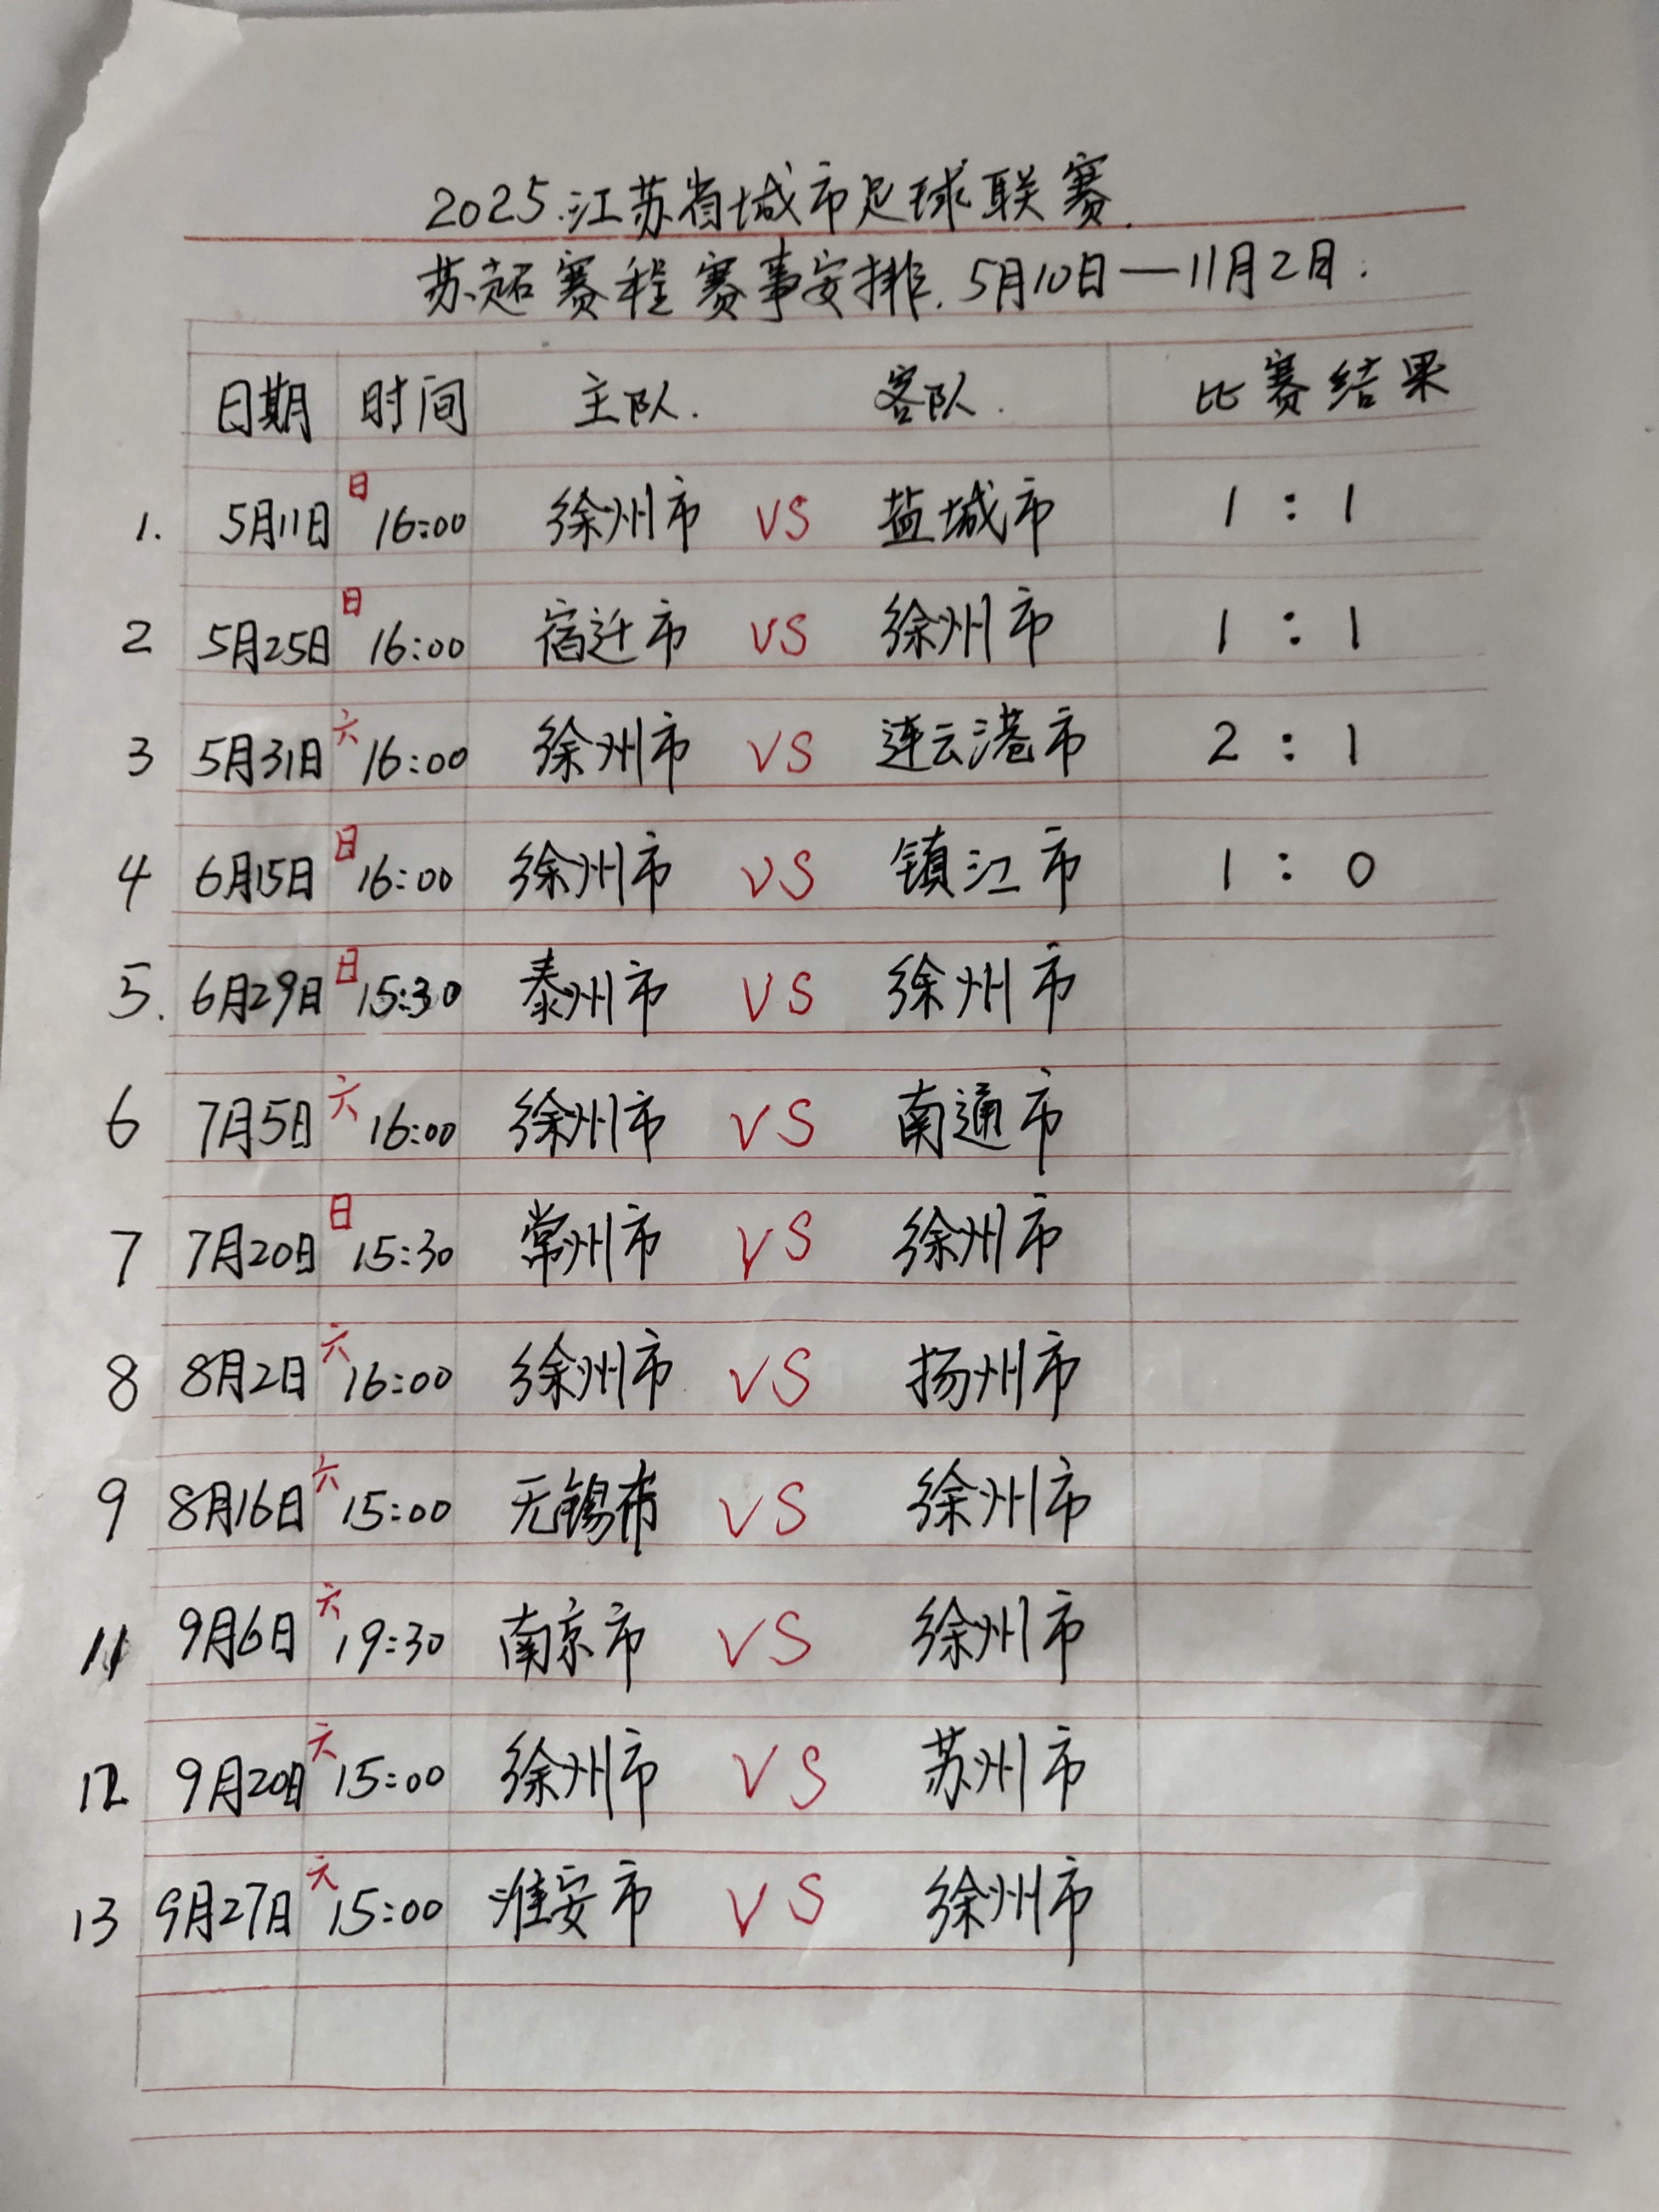 2025.江苏省城市足球联赛.
苏超赛程赛事安排.5月10日—11月2日.
日期 时间 主队. 客队. 比赛结果
1. 5月11日 日 16:00 徐州市 VS 盐城市 1:1
2 5月25日 日 16:00 宿迁市 VS 徐州市 1:1
3 5月31日 六 16:00 徐州市 VS 连云港市 2:1
4 6月15日 日 16:00 徐州市 VS 镇江市 1:0
5. 6月29日 日 15:30 泰州市 VS 徐州市
6 7月5日 六 16:00 徐州市 VS 南通市
7 7月20日 日 15:30 常州市 VS 徐州市
8 8月2日 六 16:00 徐州市 VS 扬州市
9 8月16日 六 15:00 无锡市 VS 徐州市
11 9月6日 六 19:30 南京市 VS 徐州市
12 9月20日 六 15:00 徐州市 VS 苏州市
13 9月27日 六 15:00 淮安市 VS 徐州市